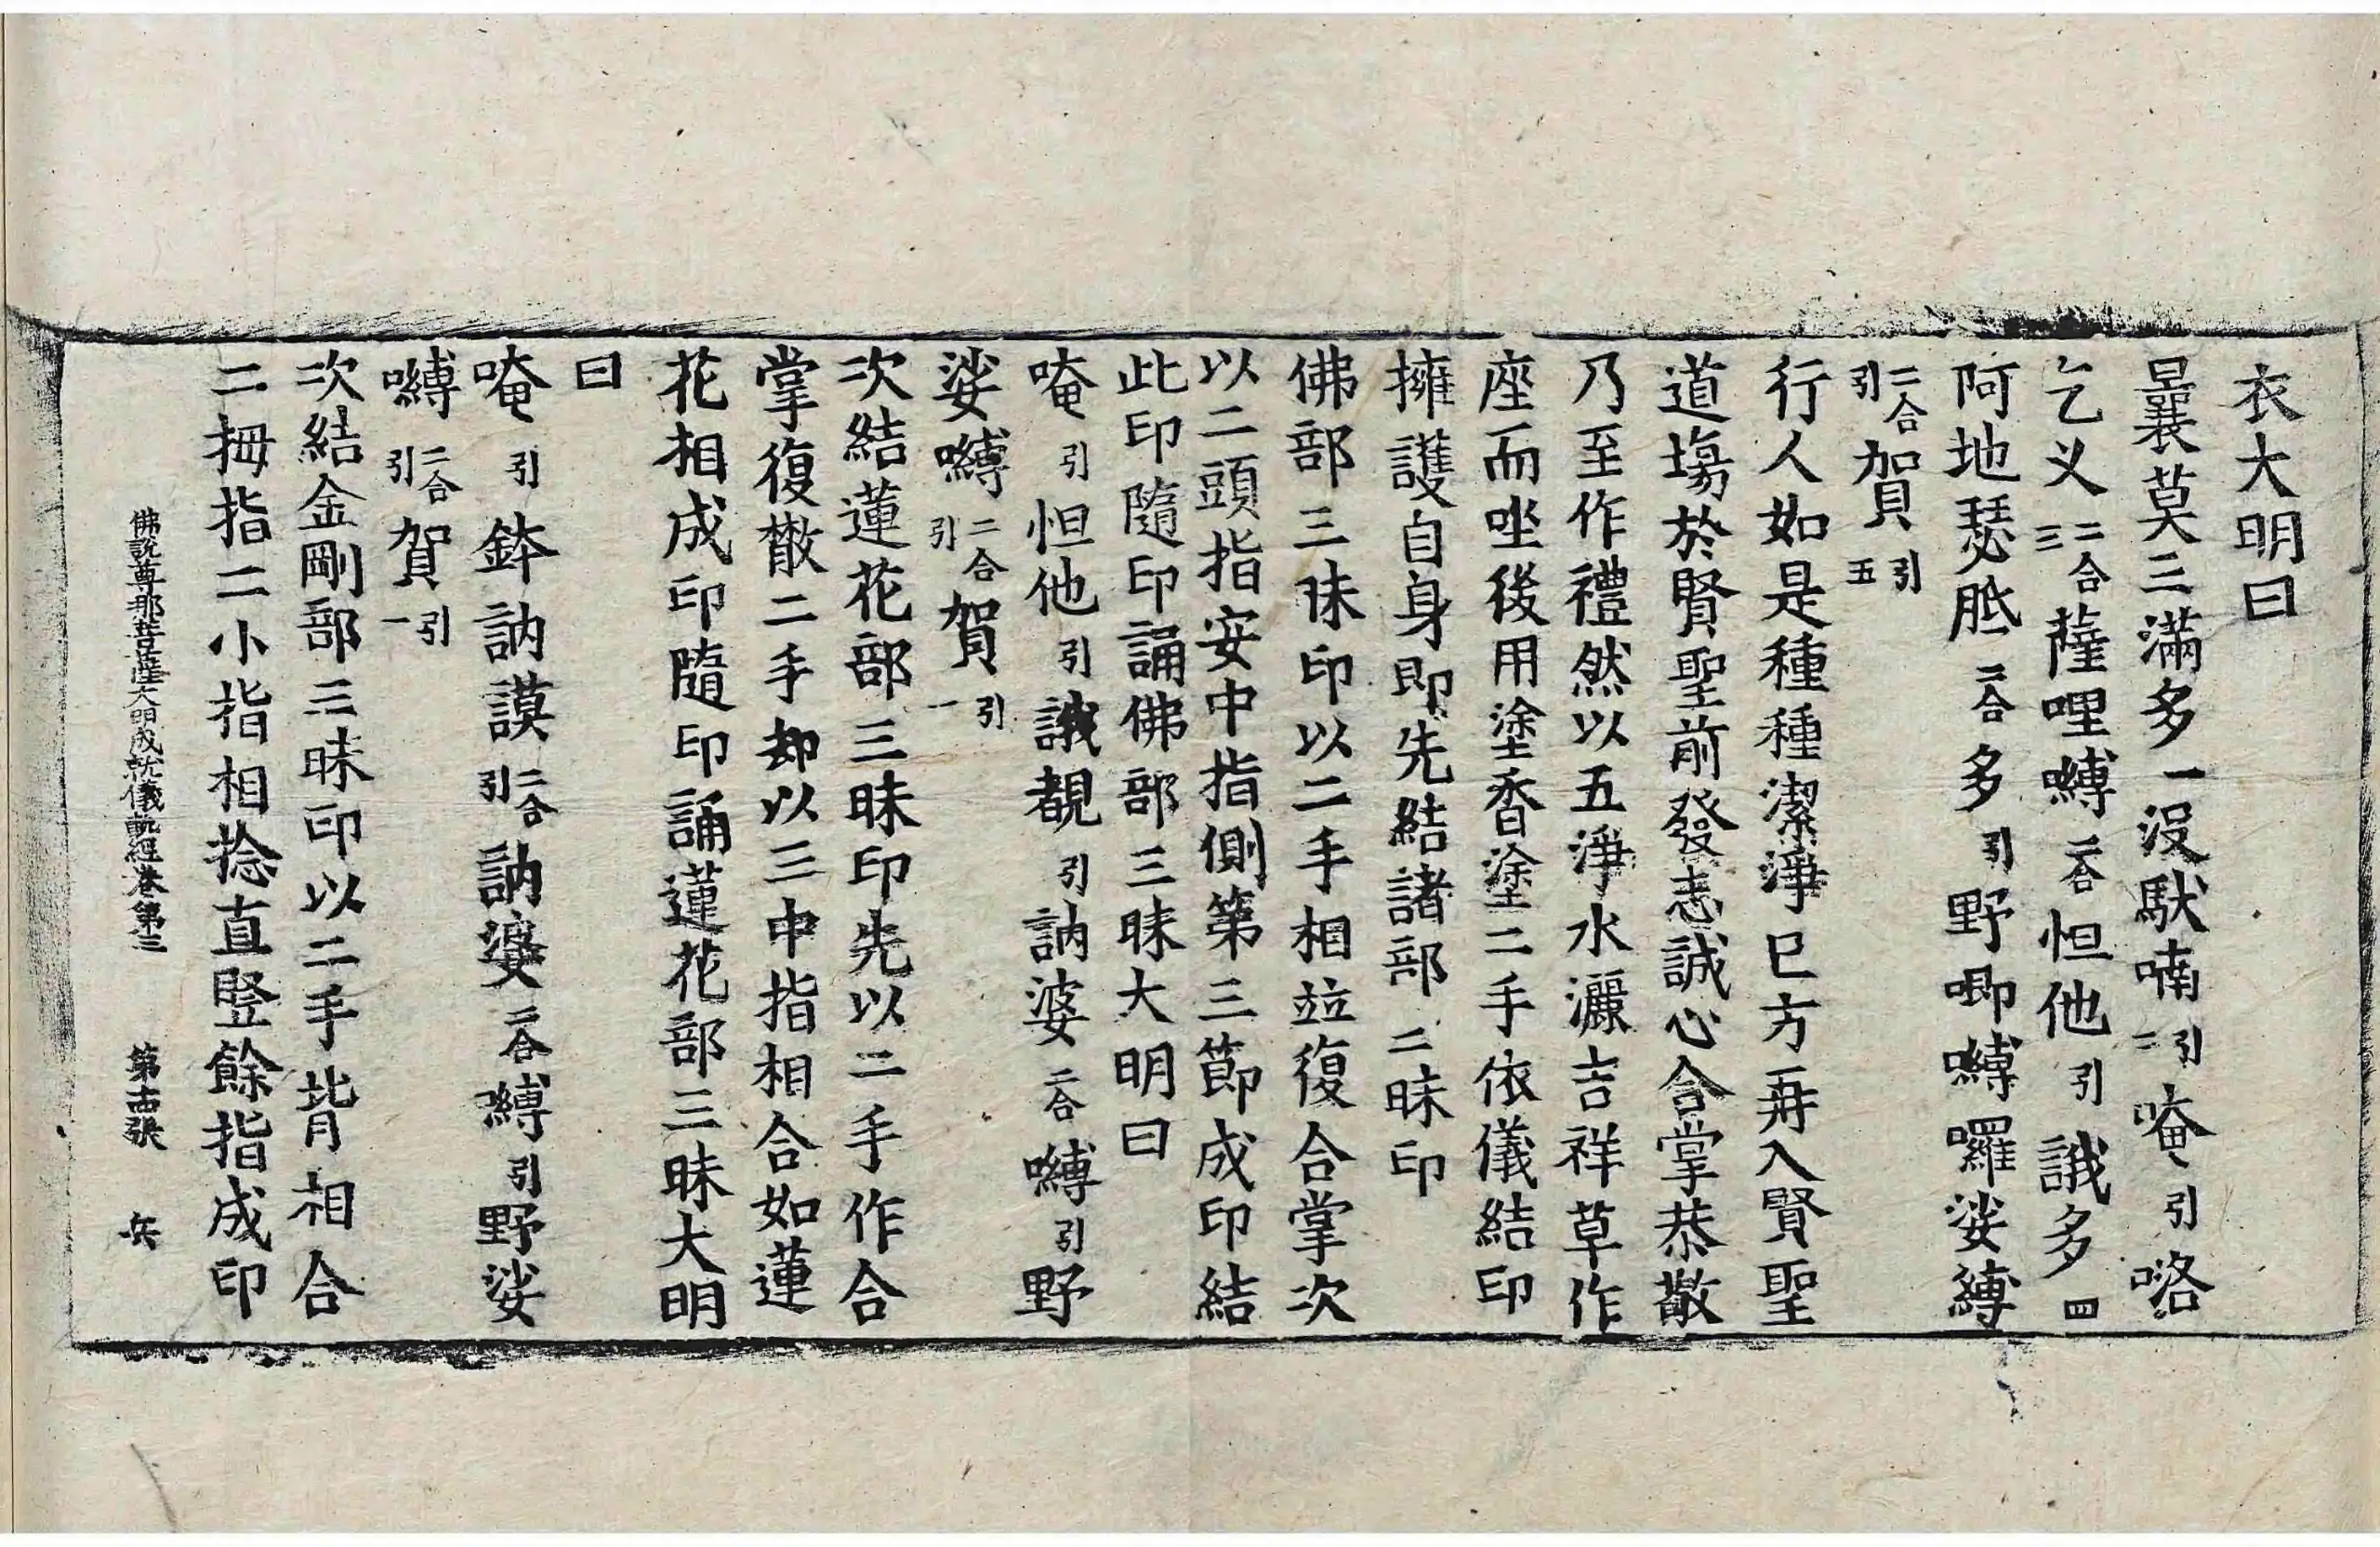 衣大明曰
曩莫三滿多一沒馱喃引二唵引咯
乞义二合三薩哩嚩二合怛他引誐多四
阿地瑟胝二合多引野唧嚩囉娑嚩
二合引賀引五
行人如是種種潔淨巳方再入賢聖
道場於賢聖前發志誠心合掌恭敬
乃至作禮然以五淨水灑吉祥草作
座而坐後用塗香塗二手依儀結印
擁護自身即先結諸部三昧印
佛部三昧印以二手相竝復合掌次
以二頭指安中指側第三節成印結
此印隨印誦佛部三昧大明曰
唵引怛他引誐覩引訥婆二合嚩引野
娑嚩二合引賀引一
次結蓮花部三昧印先以二手作合
掌復散二手却以三中指相合如蓮
花相成印隨印誦蓮花部三昧大明
曰
唵引鉢訥謨二合引訥婆二合嚩引野娑
嚩二合引賀引一
次結金剛部三昧印以二手背相合
二拇指二小指相捻直竪餘指成印
佛說尊那菩薩大明成就儀軌經卷第三 第十四張 兵